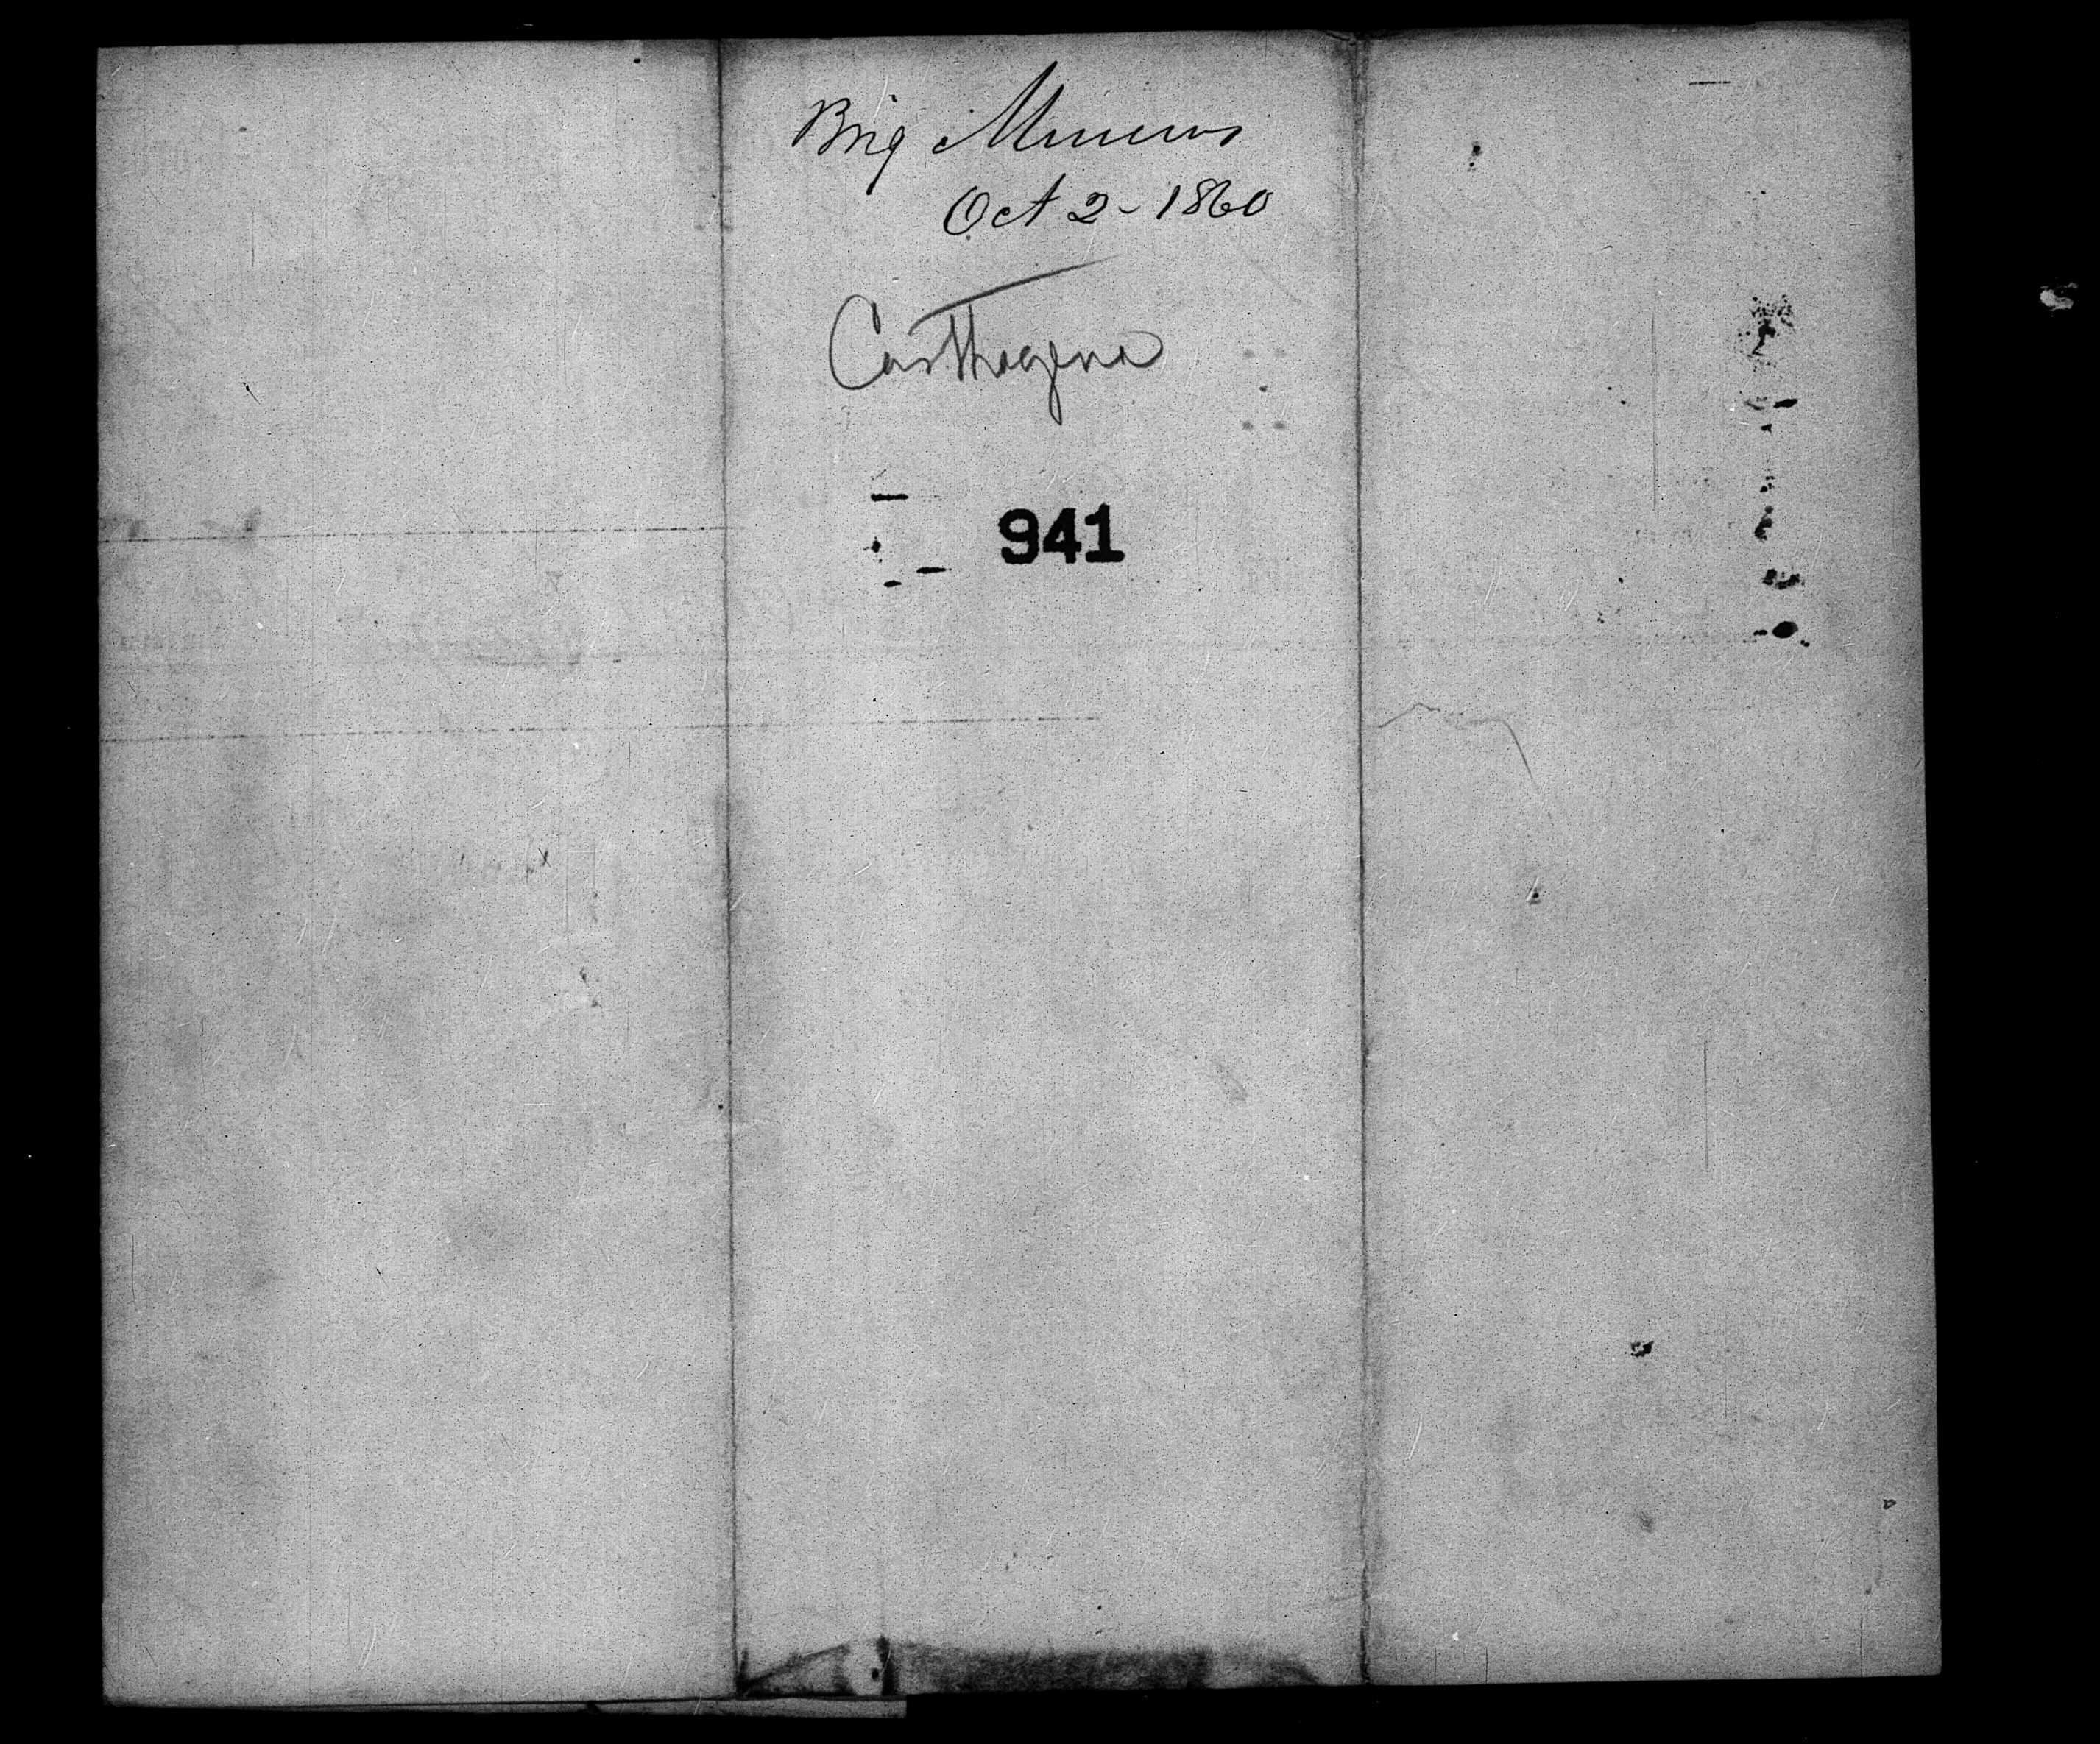 Brig Minerva
Oct 2 - 1860
Carthagena
941